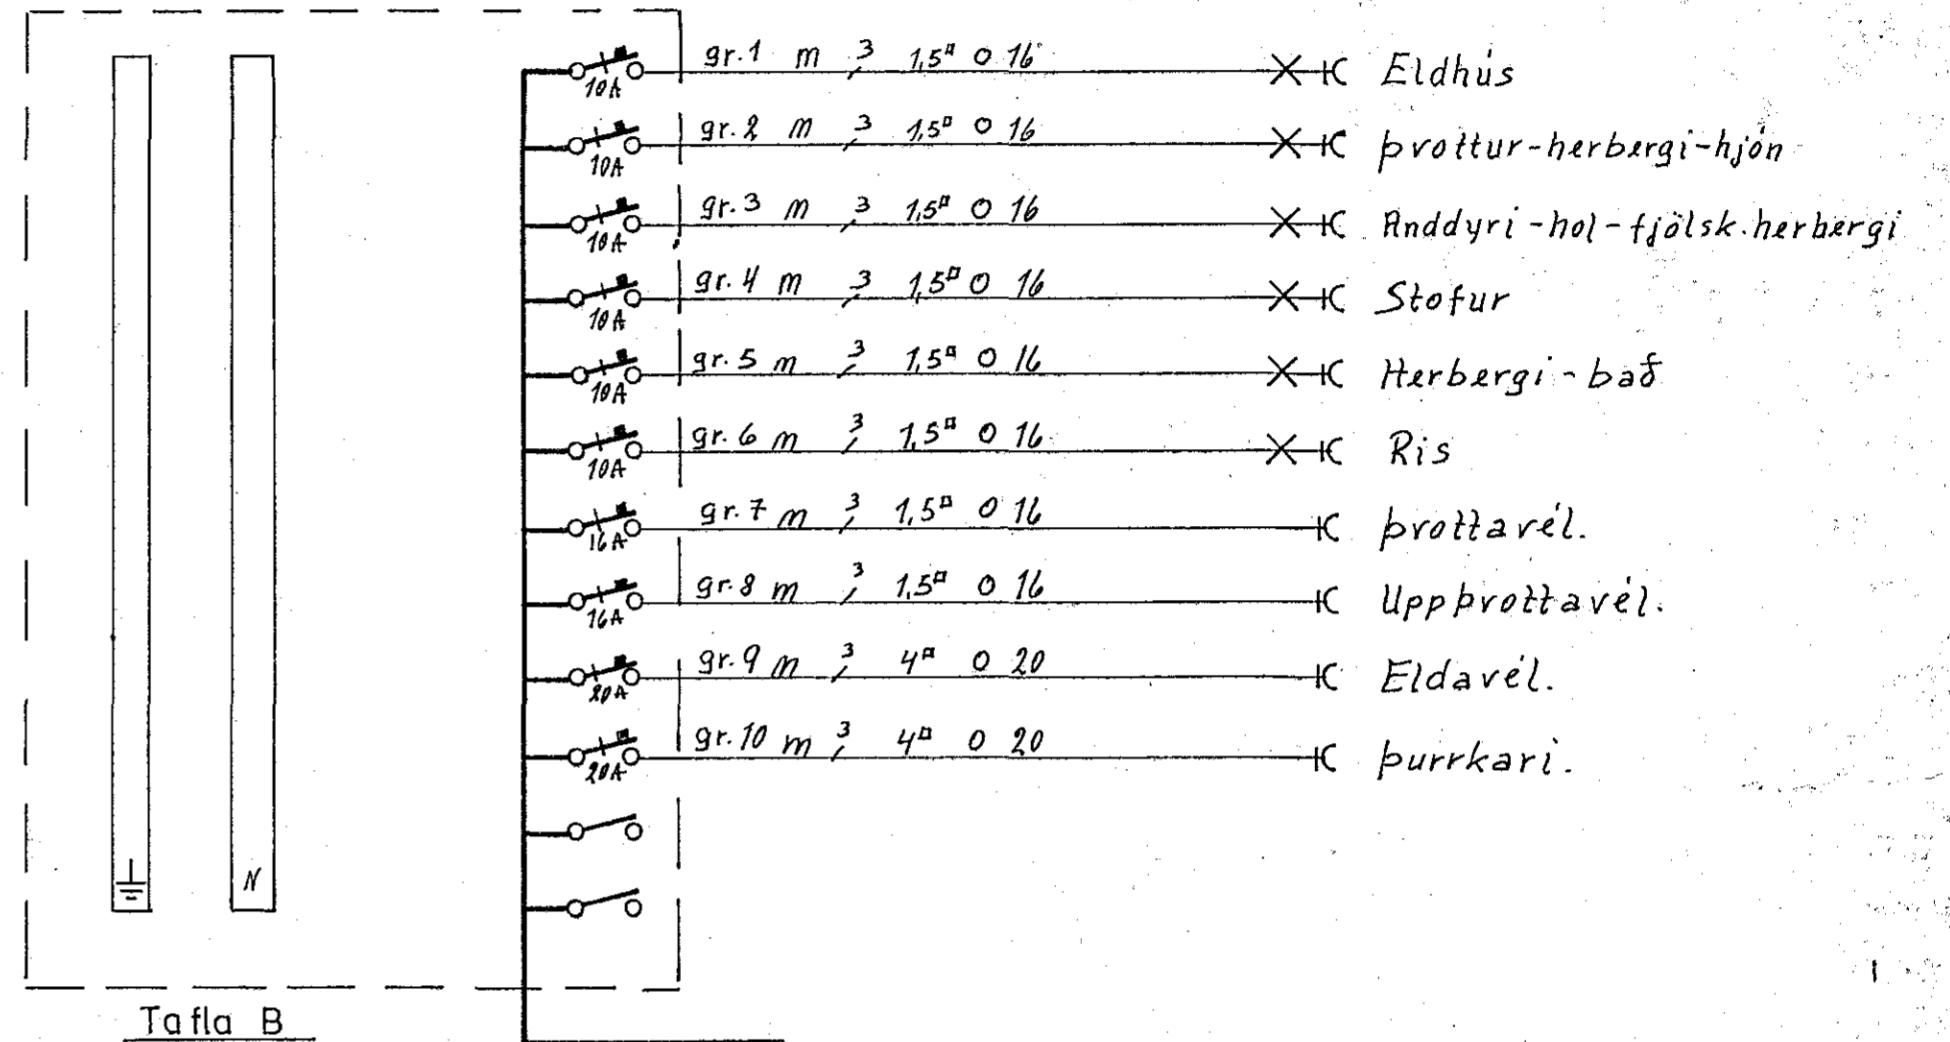 gr.1 m 3 1,5▫ O 16 Eldhús
10A
gr.2 m 3 1,5▫ O 16 þvottur-herbergi-hjón
10A
gr.3 m 3 1,5▫ O 16 Anddyri-hol-fjölsk.herbergi
10A
gr.4 m 3 1,5▫ O 16 Stofur
10A
gr.5 m 3 1,5▫ O 16 Herbergi-bað
10A
gr.6 m 3 1,5▫ O 16 Ris
10A
gr.7 m 3 1,5▫ O 16 þvottavél.
16A
gr.8 m 3 1,5▫ O 16 Uppþvottavél.
16A
gr.9 m 3 4▫ O 20 Eldavél.
20A
gr.10 m 3 4▫ O 20 þurrkari.
20A
N
Tafla B